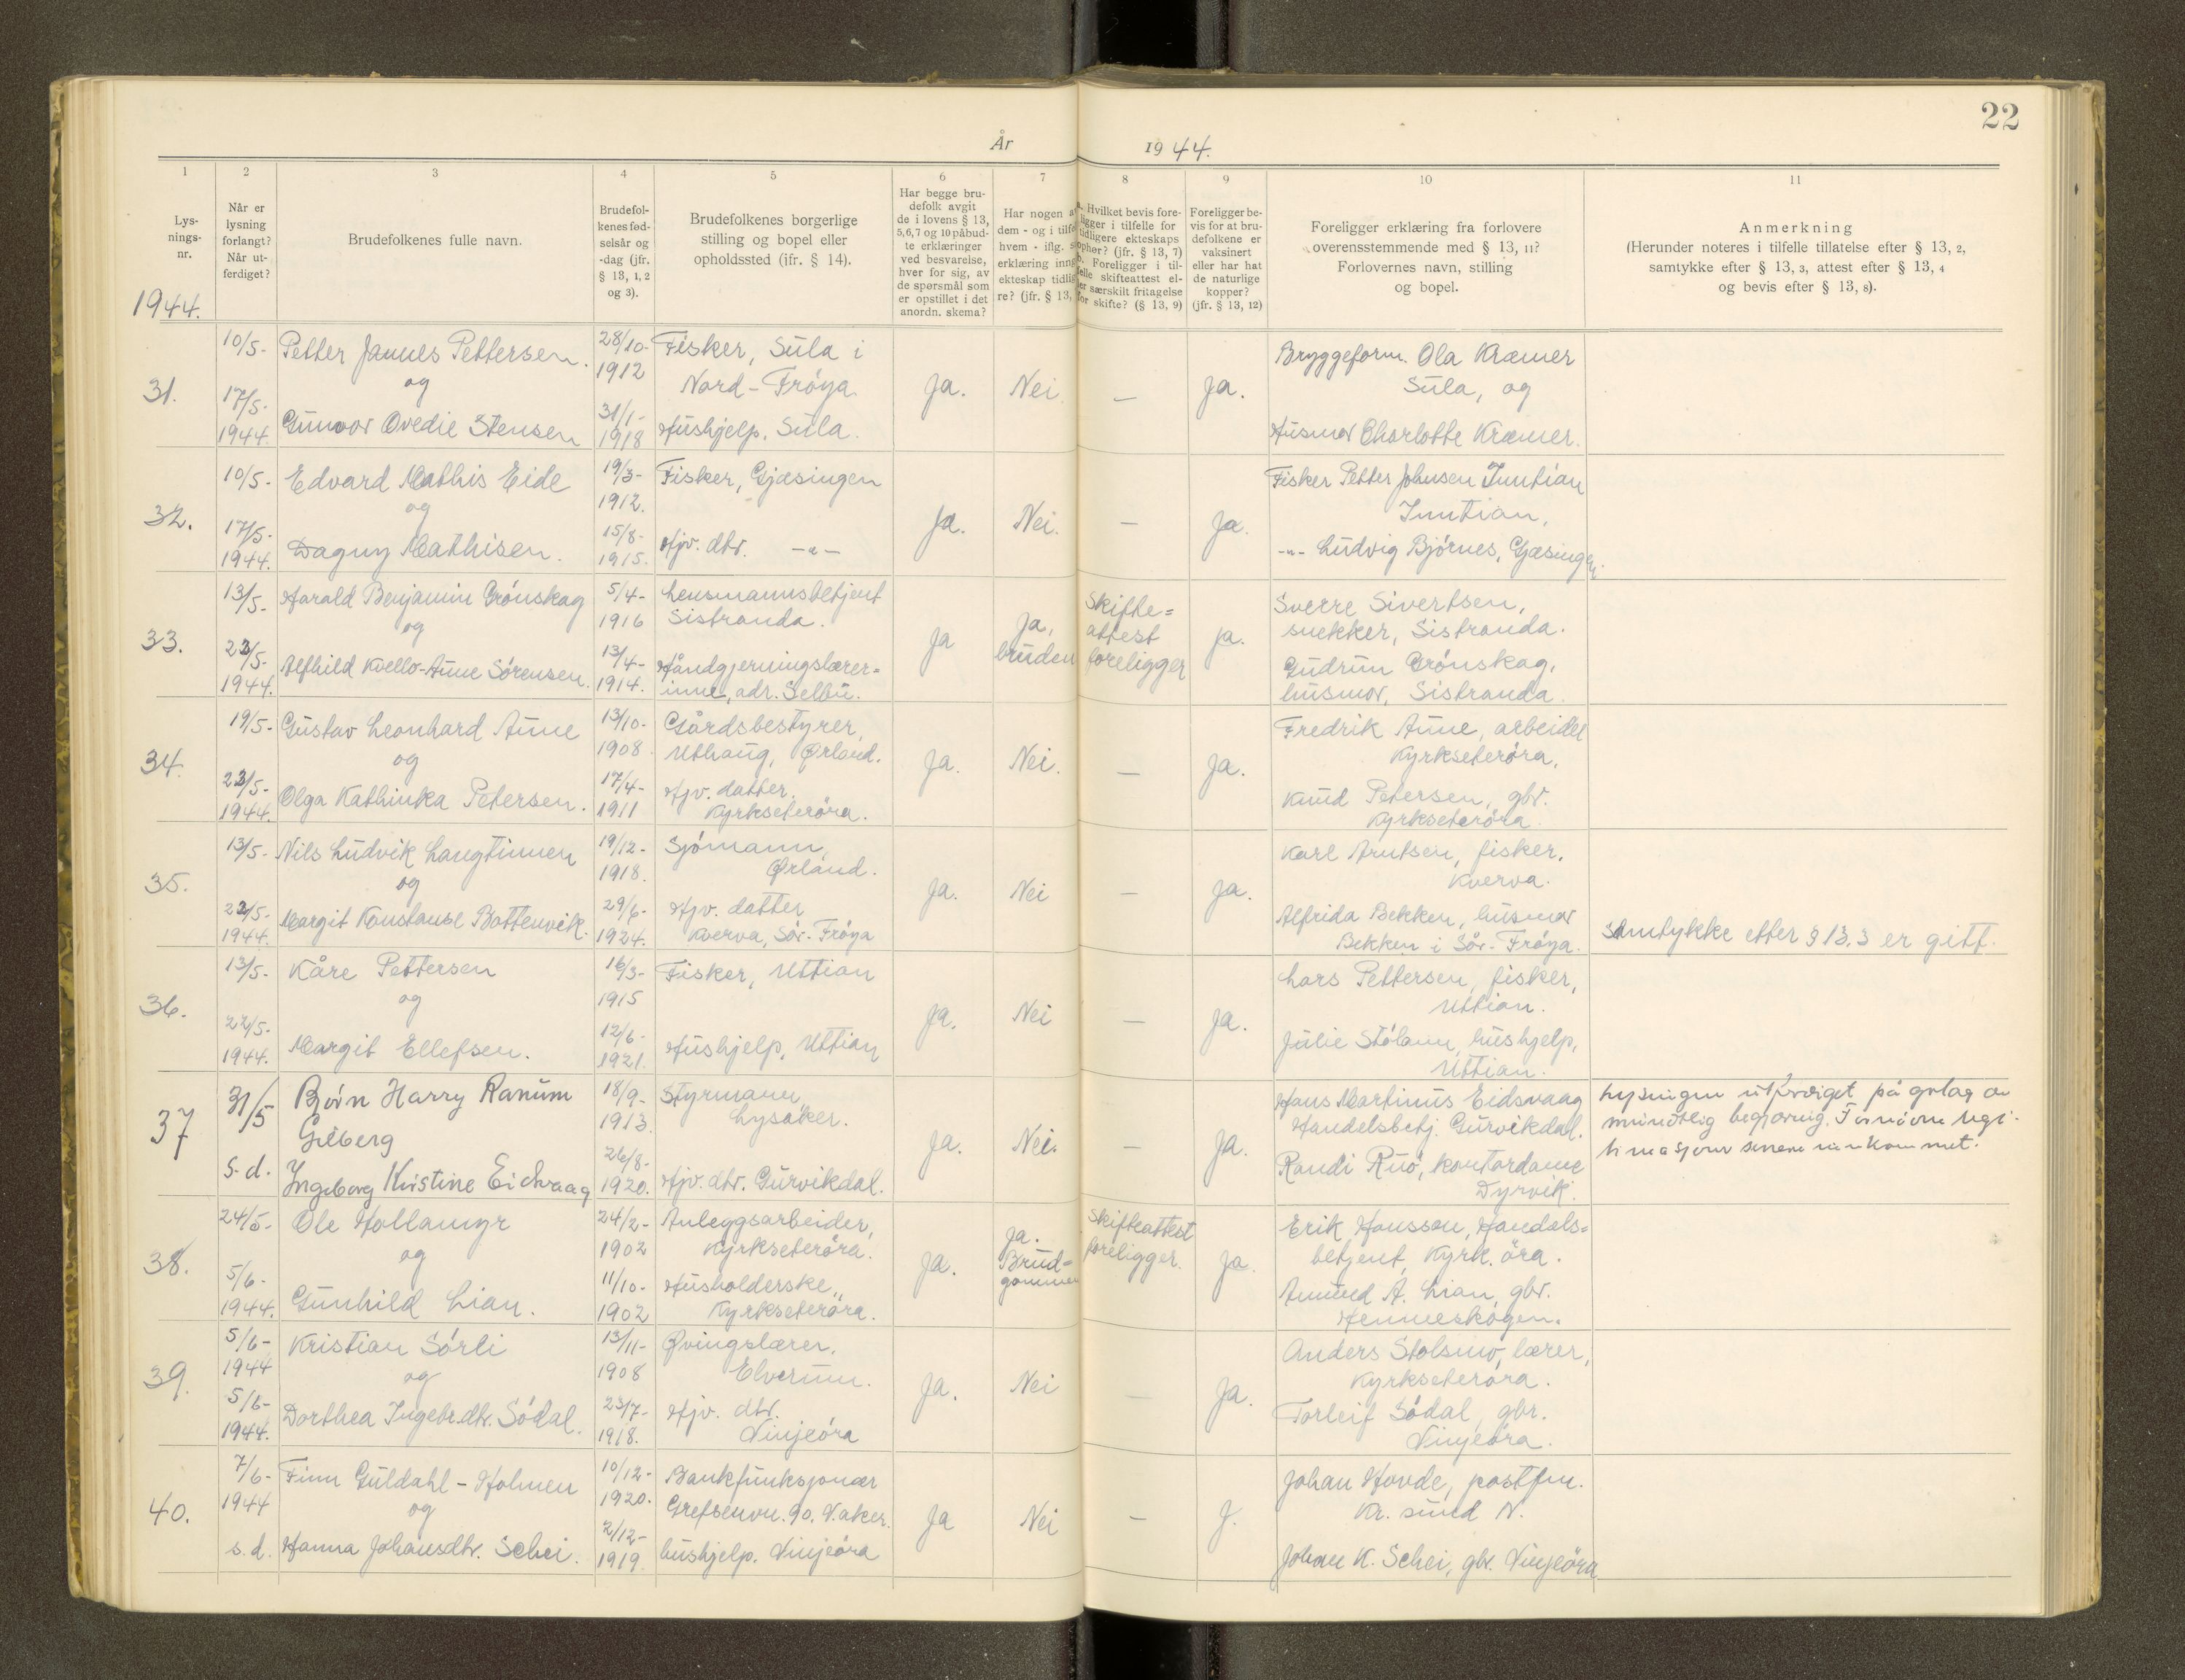 22
År 1944.
1 2 3 4 5 6 7 8 9 10 11
Lys-
nings-
nr.
Når er
lysning
forlangt?
Når ut-
ferdiget?
Brudefolkenes fulle navn.
Brudefol-
kenes fød-
selsår og
-dag (jfr.
§ 13, 1, 2
og 3).
Brudefolkenes borgerlige
stilling og bopel eller
opholdssted (jfr. § 14).
Har begge bru-
defolk avgit
de i lovens § 13,
5, 6, 7 og 10 påbud-
te erklæringer
ved besvarelse,
hver for sig, av
de spørsmål som
er opstillet i det
anordn. skema?
Har nogen a
dem - og i tilfe
hvem - iflg. s
erklæring inng
ekteskap tidlig
re? (jfr. § 13,
Hvilket bevis fore-
ligger i tilfelle for
tidligere ekteskaps
ophør? (jfr. § 13, 7)
b. Foreligger i til-
felle skifteattest el-
er særskilt fritagelse
for skifte? (§ 13, 9)
Foreligger be-
vis for at bru-
defolkene er
vaksinert
eller har hat
de naturlige
kopper?
(jfr. § 13, 12)
Foreligger erklæring fra forlovere
overensstemmende med § 13, 11?
Forlovernes navn, stilling
og bopel.
Anmerkning
(Herunder noteres i tilfelle tillatelse efter § 13, 2,
samtykke efter § 13, 3, attest efter § 13, 4
og bevis efter § 13, 8).
1944.
31.
10/5-
17/5-
1944.
Petter James Pettersen.
og
Gunvor Ovedie Stensen
28/10-
1912
31/1-
1918
Fisker, Sula i
Nord-Frøya
Hushjelp, Sula.
Ja.
Nei.
—
Ja.
Bryggeform. Ola Kræmer
Sula, og
Husmor Charlotte Kræmer.
32.
10/5-
17/5-
1944.
Edvard Mathis Eide
og
Dagny Mathisen.
19/3-
1912.
15/8-
1915.
Fisker, Gjæsingen
Hjv. dtr. -"-
Ja.
Nei.
—
Ja.
Fisker Petter Johnsen Inntian
Inntian,
-"- Ludvig Bjørnes, Gjæsingen.
33.
13/5-
22/5-
1944.
Harald Benjamin Grønskag
og
Alfhild Kvello-Aune Sørensen.
5/4-
1916
13/4-
1914.
Lensmannsbetjent
Sistranda.
Håndgjerningslærer=
inne, adr. Selbu.
Ja
Ja,
bruden
Skifte=
attest
foreligger
Ja.
Sverre Sivertsen,
snekker, Sistranda.
Gudrun Grønskag,
husmor, Sistranda.
34.
19/5-
23/5-
1944.
Gustav Leonhard Aune
og
Olga Kathinka Petersen.
13/10-
1908.
17/4-
1911
Gårdsbestyrer,
Uthaug, Ørland.
Hjv. datter,
Kyrksæterøra.
Ja.
Nei.
—
Ja.
Fredrik Aune, arbeider
Kyrkseterøra,
Knud Petersen, gbr.
Kyrkseterøra.
35.
13/5-
22/5-
1944.
Nils Ludvik Langtinnen
og
Margit Konstanse Bottenvik.
19/12-
1918.
29/6-
1924.
Sjømann,
Ørland.
Hjv. datter
Kverva, Sør-Frøya
Ja.
Nei
—
Ja.
Karl Arntsen, fisker,
Kverva.
Alfrida Bekken, husmor
Bekken i Sør-Frøya.
Samtykke etter § 13.3 er gitt.
36.
13/5-
22/5-
1944.
Kåre Pettersen
og
Margit Ellefsen.
16/3-
1915
12/6-
1921.
Fisker, Uttian
Hushjelp, Uttian
Ja.
Nei
—
Ja.
Lars Pettersen, fisker,
Uttian.
Julie Stølann, hushjelp,
Uttian.
37
31/5
s.d.
Bjørn Harry Ranum
Gilberg
Ingeborg Kristine Eidsvaag
18/9-
1913.
26/8-
1920.
Styrmann,
Lysaker.
Hjv. dtr. Gurvikdal.
Ja.
Nei.
—
Ja.
Hans Martinus Eidsvaag
Handelsbetj. Gurvikdal.
Randi Ruø, kontordame
Dyrvik.
Lysningen utferdiget på grlag av
muntlig begjæring. Fornøvne legi-
timasjoner senere innkommet.
38.
24/5-
5/6-
1944.
Ole Hollamyr
og
Gunhild Lian.
24/2-
1902
11/10-
1902
Anleggsarbeider,
Kyrkseterøra.
Husholderske,
Kyrkseterøra.
Ja.
Ja.
Brud=
gommen
Skifteattest
foreligger.
Ja
Erik Hansson, Handels=
betjent, Kyrk.øra.
Amund A. Lian, gbr.
Henneskogen.
39.
5/6-
1944
5/6-
1944.
Kristian Sørli
og
Dorthea Ingebr.dtr. Sødal.
13/11-
1908
23/7-
1918.
Øvingslærer,
Elverum.
Hjv. dtr.
Vinjeøra
Ja.
Nei
—
Ja.
Anders Stolsmo, lærer,
Kyrkseterøra.
Torleif Sødal, gbr.
Vinjeøra.
40.
7/6-
1944
s.d.
Finn Guldahl-Holmen
og
Hanna Johansdtr. Schei.
10/12-
1920.
2/12-
1919.
Bankfunksjonær
Grefsenvn. 90. V.aker.
hushjelp. Vinjeøra
Ja
Nei
—
J.
Johan Hovde, postfm.
Kr. sund N.
Johan K. Schei, gbr. Vinjeøra